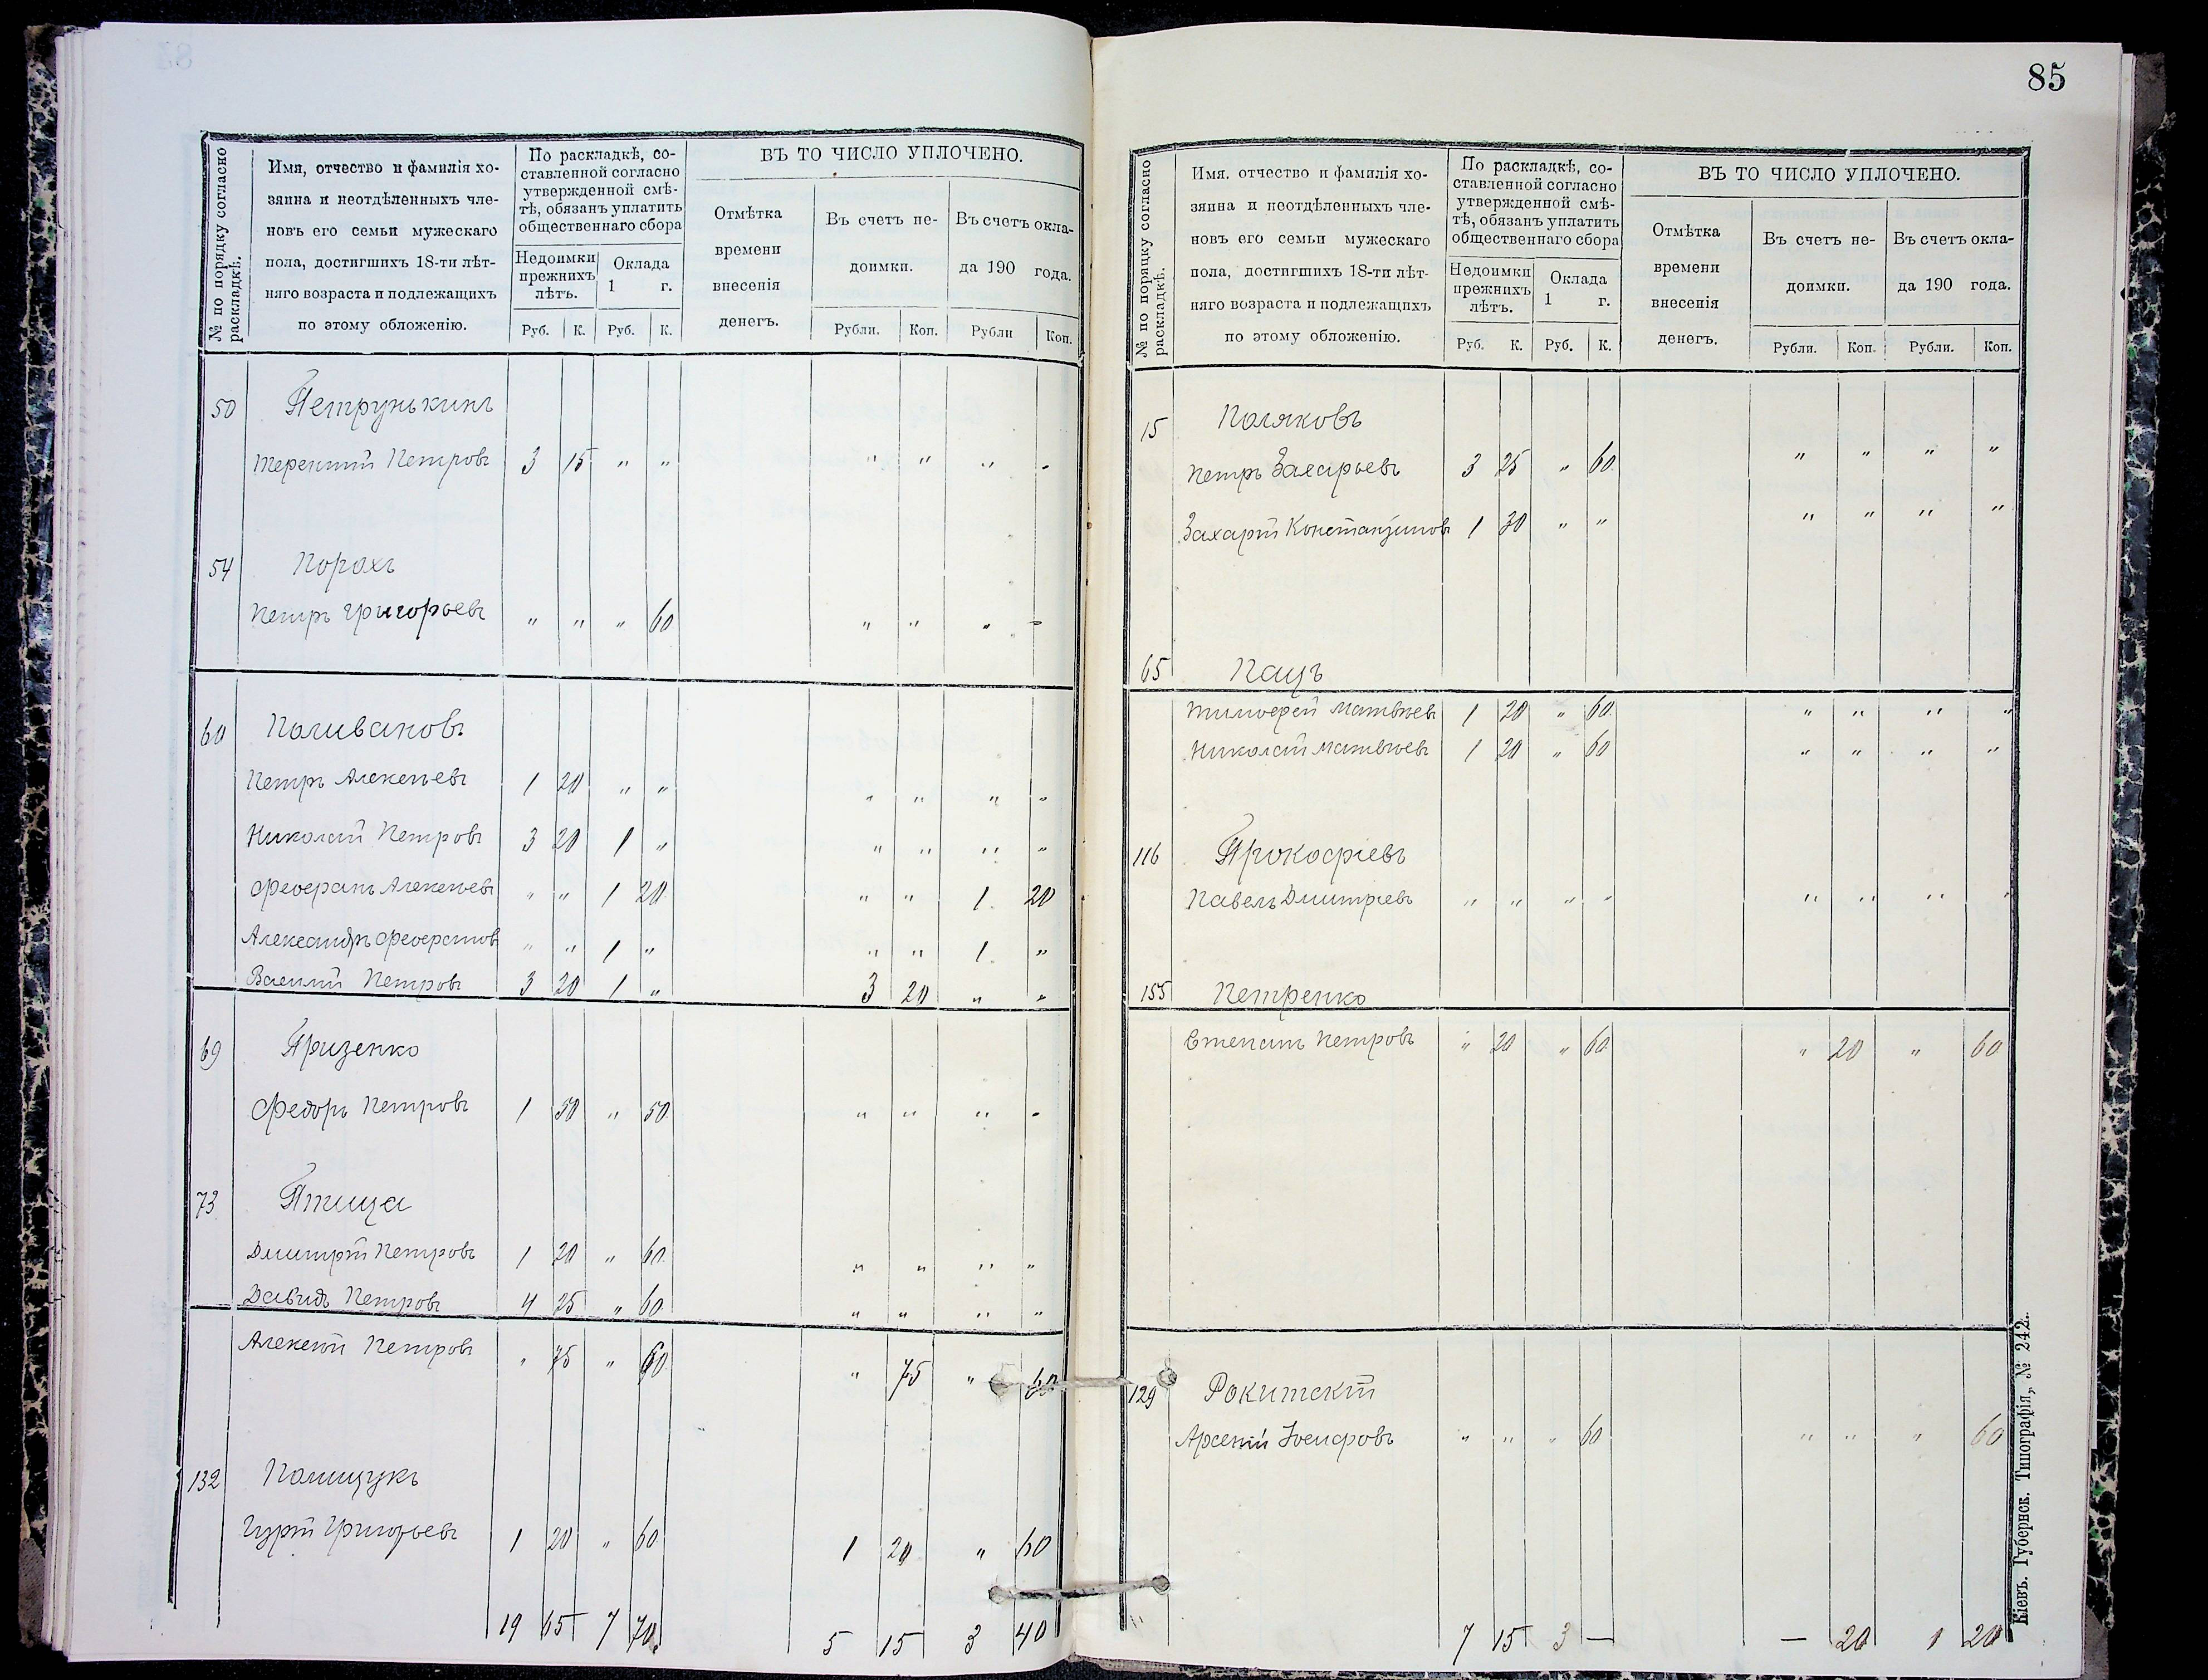 85
№ по порядку согласно раскладкѣ.
Имя, отчество и фамилія хо-
зяина и неотдѣленныхъ чле-
новъ его семьи мужескаго
пола, достигшихъ 18-ти лѣт-
няго возраста и подлежащихъ
по этому обложенію.
По раскладкѣ, со-
ставленной согласно
утвержденной смѣ-
тѣ, обязанъ уплатить
общественнаго сбора
Недоимки
прежнихъ
лѣтъ.
Оклада
1 г.
Руб. К. Руб. К.
ВЪ ТО ЧИСЛО УПЛОЧЕНО.
Отмѣтка
времени
внесенія
денегъ.
Въ счетъ не-
доимки.
Въ счетъ окла-
да 190 года.
Рубли. Коп. Рубли Коп.
50 Петрунькинъ
Терентій Петровъ 3 15 " " " " " "
54 Порохъ
Петръ Григорьевъ " " " 60 " " " "
60 Поливановъ
Петръ Алексѣевъ 1 20 " " " " " "
Николай Петровъ 3 20 1 " " " " "
Алексѣевъ " " 1 20 " " 1 20
Александръ " " 1 " " " 1 "
Василій Петровъ 3 20 1 " 3 20 " "
69 Призенко
Федоръ Петровъ 1 50 " 50 " " " "
73 Птица
Дмитрій Петровъ 1 20 " 60 " " " "
Давидъ Петровъ 4 25 " 60 " " " "
Алексѣй Петровъ " 75 " 60 " 75 " 60
132 Полищукъ
Гурій Григорьевъ 1 20 " 60 1 20 " 60
19 65 7 70 5 15 3 40
№ по порядку согласно раскладкѣ.
Имя, отчество и фамилія хо-
зяина и неотдѣленныхъ чле-
новъ его семьи мужескаго
пола, достигшихъ 18-ти лѣт-
няго возраста и подлежащихъ
по этому обложенію.
По раскладкѣ, со-
ставленной согласно
утвержденной смѣ-
тѣ, обязанъ уплатить
общественнаго сбора
Недоимки
прежнихъ
лѣтъ.
Оклада
1 г.
Руб. К. Руб. К.
ВЪ ТО ЧИСЛО УПЛОЧЕНО.
Отмѣтка
времени
внесенія
денегъ.
Въ счетъ не-
доимки.
Въ счетъ окла-
да 190 года.
Рубли. Коп. Рубли. Коп.
15 Поляковъ
Петръ Захарьевъ 3 25 " 60 " " " "
Захарій Константиновъ 1 30 " " " " " "
65 Пацъ
Тимофей Матвѣевъ 1 20 " 60 " " " "
Николай Матвѣевъ 1 20 " 60 " " " "
116 Прокофіевъ
Павелъ Дмитріевъ " " " " " " " "
155 Петренко
Степанъ Петровъ " 20 " 60 " 20 " 60
129 Рокитскій
Арсеній " " " 60 " " " 60
7 15 3 — — 20 1 20
Кіевъ. Губернск. Типографія, № 242.